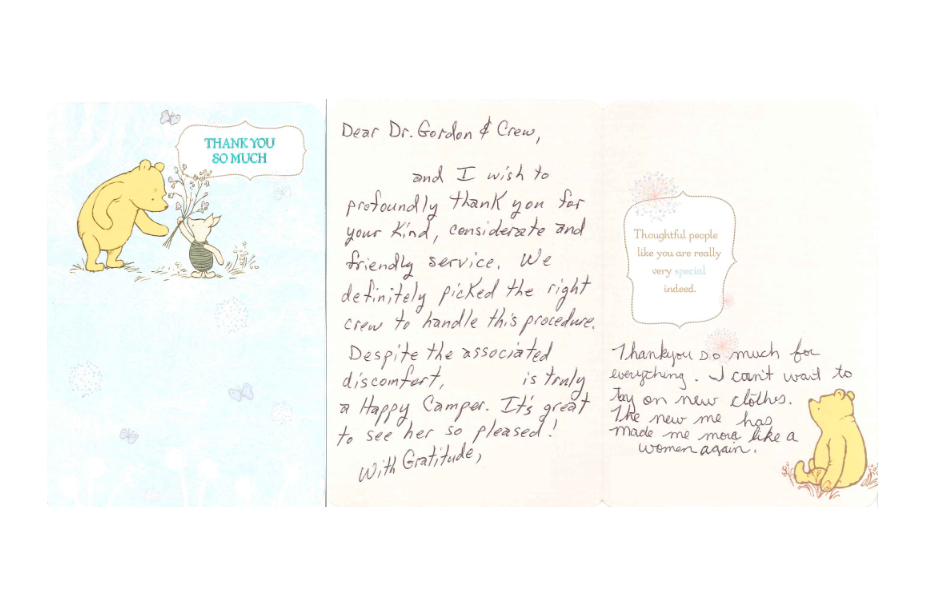 THANK YOU
SO MUCH
Dear Dr. Gordon & Crew,
and I wish to
profoundly thank you for
your kind, considerate and
friendly service. We
definitely picked the right
crew to handle this procedure.
Despite the associated
discomfort, is truly
a Happy Camper. It's great
to see her so pleased!
With Gratitude,
Thoughtful people
like you are really
very special
indeed.
Thankyou so much for
everything. I can't wait to
Tay on new clothes.
The new me has
made me more like a
women again.